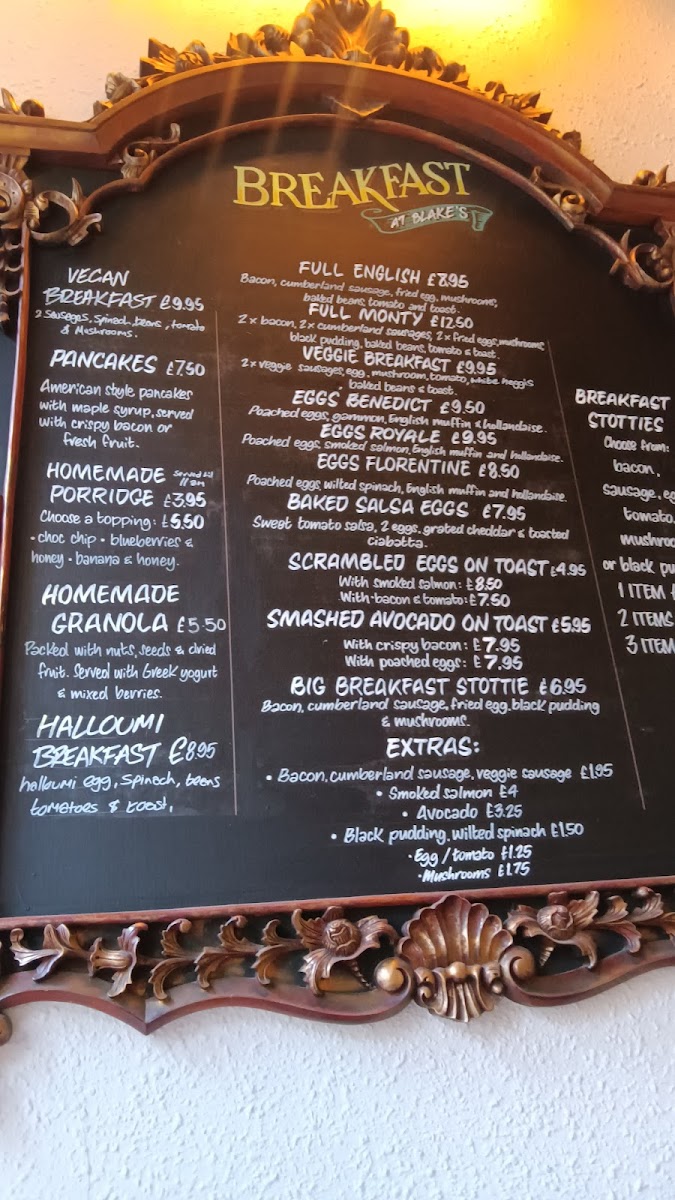 BREAKFAST
AT BLAKE'S
VEGAN
BREAKFAST £9.95
2 Sausages, Spinach, beans, tomato
& Mushrooms.
PANCAKES £7.50
American style pancakes
with maple syrup, served
with crispy bacon or
fresh fruit.
HOMEMADE Served till
11am
PORRIDGE £3.95
Choose a topping: £5.50
• choc chip • blueberries &
honey • banana & honey.
HOMEMADE
GRANOLA £5.50
Packed with nuts, seeds & dried
fruit. Served with Greek yogurt
& mixed berries.
HALLOUMI
BREAKFAST £8.95
halloumi egg, spinach, beans
tomatoes & toast,
FULL ENGLISH £8.95
Bacon, cumberland sausage, fried egg, mushrooms,
baked beans, tomato and toast.
FULL MONTY £12.50
2 x bacon, 2 x cumberland sausages, 2 x fried eggs, mushrooms
black pudding, baked beans, tomato & toast.
VEGGIE BREAKFAST £9.95
2 x veggie sausages, egg, mushroom, tomato,
baked beans & toast.
EGGS BENEDICT £9.50
Poached eggs, gammon, English muffin & hollandaise.
EGGS ROYALE £9.95
Poached eggs, smoked salmon, English muffin and hollandaise.
EGGS FLORENTINE £8.50
Poached eggs, wilted spinach, English muffin and hollandaise.
BAKED SALSA EGGS £7.95
Sweet tomato salsa, 2 eggs, grated cheddar & toasted
ciabatta.
SCRAMBLED EGGS ON TOAST £4.95
With smoked salmon: £8.50
With bacon & tomato: £7.50
SMASHED AVOCADO ON TOAST £5.95
With crispy bacon: £7.95
With poached eggs: £7.95
BIG BREAKFAST STOTTIE £6.95
Bacon, cumberland sausage, fried egg, black pudding
& mushrooms.
EXTRAS:
• Bacon, cumberland sausage, veggie sausage £1.95
• Smoked salmon £4
• Avocado £3.25
• Black pudding, wilted spinach £1.50
• Egg / tomato £1.25
• Mushrooms £1.75
BREAKFAST
STOTTIES
Choose from:
bacon,
sausage, eg
tomato,
mushroo
or black pu
1 ITEM
2 ITEMS
3 ITEM